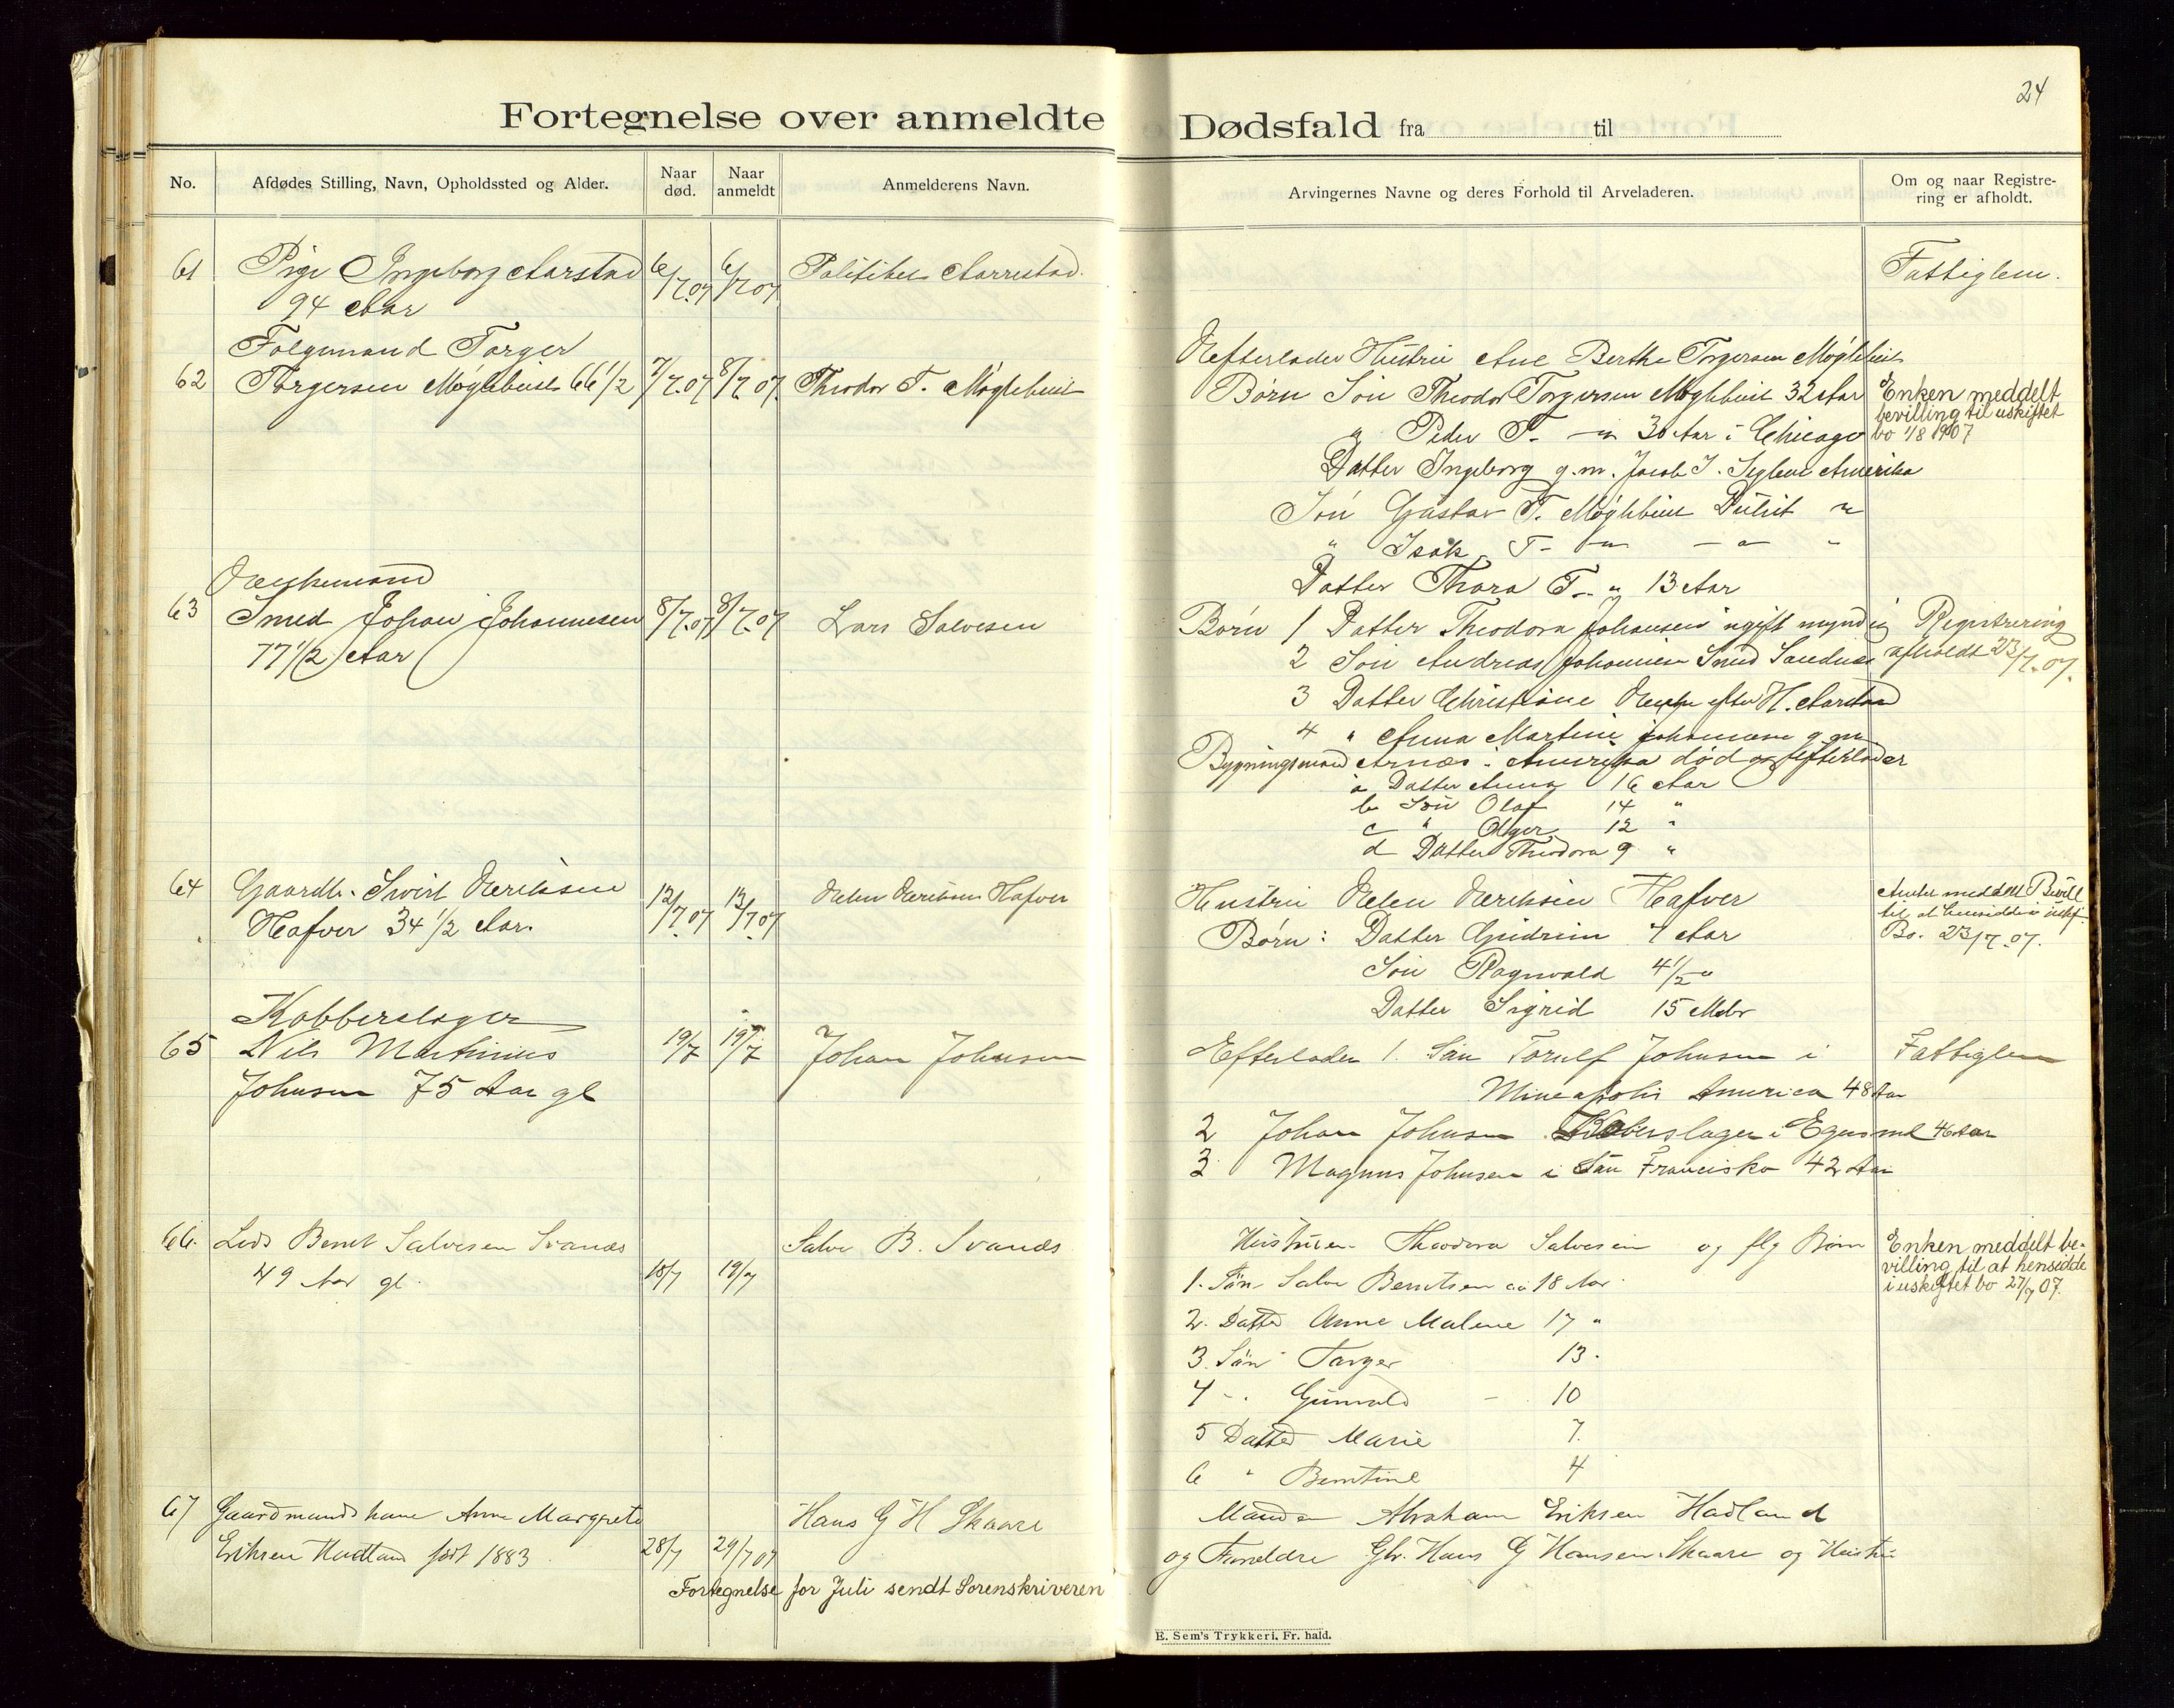 24
Fortegnelse over anmeldte Dødsfald fra til
No.
Afdødes Stilling, Navn, Opholdssted og Alder.
Naar død.
Naar anmeldt
Anmelderens Navn.
Arvingernes Navne og deres Forhold til Arveladeren.
Om og naar Registre-
ring er afholdt.
61 Pige Ingeborg Aarstad 6/7.07 6/7 07 Aarrestad. Fattiglem.
94 Aar
Folgemand Torger
62 Torgersen Møglebust 66 1/2 7/7.07 8/7 07. Theodor T. Møglebust
Efterlader Hustru Ane Berthe Torgersen Møglebust
Børn Søn Theodor Torgersen Møglebust 32 Aar
" Peder T. — " 30 Aar i Chicago
Datter Ingeborg g.m. Jacob J. Amerika
Søn Gustav T. Møglebust "
" Isak T - " - " - "
Datter Thora T - " 13 Aar
Enken meddelt
bevilling til uskiftet
bo 1/8 1907
Enkemand
63 Smed Johan Johannesen 8/7.07 8/7.07 Lars Salvesen
77 1/2 Aar
Børn 1 Datter Theodora Johansen ugift myndig
2 Søn Andreas Johannesen Smed Sandnæs
3 Datter Christiane Enke efter H. Aarstad
4 " Anna Martine Johannesen g m
Bygningsmand Arnæs i Amerika død og efterlader
a Datter Anna 16 Aar
b Søn Olaf 14 "
c " Olger 12 "
d Datter Theodora 9 "
Registrering
afholdt 23/7.07.
64 Gaardbr. Sivert Eeriksen 12/7.07 13/7.07 Elen Eeriksen Hafver
Hafver 34 1/2 Aar.
Hustru Elen Eeriksen Hafver
Børn: Datter Gudrun 7 Aar
Søn Ragnvald 4 1/2 "
Datter Sigrid 15 Mdr
Enken meddelt Bevill
til at hensidde i uskf
Bo. 23/7.07.
Kobberslager
65 Nils Martinius 19/7 19/7 Johan Johnsen
Johnsen 75 Aar gl
Efterlader 1. Søn Torulf Johnsen i
Mineapolis America 48 Aar
2 Johan Johnsen Koberslager i Egersund 46 Aar
3 Magnus Johnsen i San Francisko 42 Aar
Fattiglem
66. Lods Bernt Salvesen Svanes
49 Aar gl. 18/7 19/7
Salve B. Svanes
Hustruen Theodora Salvesen og flg Børn
1. Søn Salve Berntsen 18 Aar
2. Datter Anne Malene 17 "
3. Søn Torger 13.
4 -. Gunvald - 10
5 Datter Marie 7.
6 " Berntine 4
Enken meddelt be-
villing til at hensidde
i uskiftet bo 27/7 07.
67 Gaardmandskone Anne Margrete
Eriksen Hadland født 1883 28/7 29/7 07
Hans G H Skaare
Manden Abraham Eriksen Hadland
og Foreldre Gbr. Hans G Hansen Skaare og Hustru
Fortegnelse for Juli sendt Sorenskriveren
E. Sem's Trykkeri, Fr. hald.